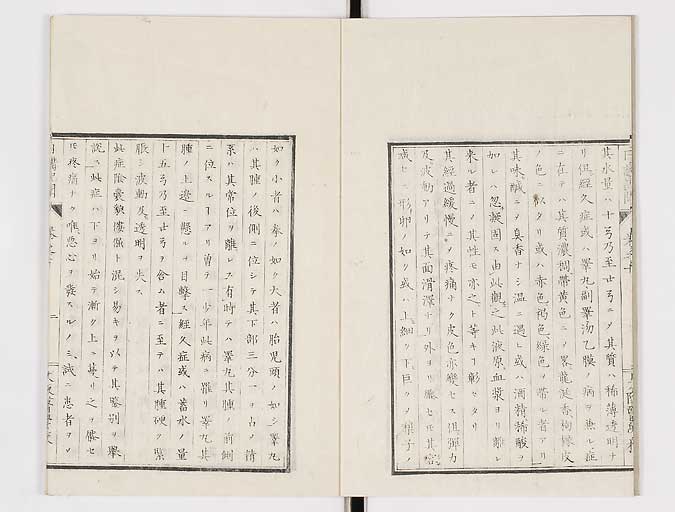 其水量ハ十弓乃至廿弓ニノ其質ハ稀薄透明ナ
リ但經久症或ハ睾丸副睾泑乙膜ノ病ヲ兼ル症
ニ在テハ其質濃稠帶黄色ニノ畧龍涎香枸櫞皮
ノ色ニ似タリ或ハ赤色褐色綠色ヲ帶ル者アリ
其味鹹ニノ臭香ナシ温ニ遇ヒ或ハ酒精稀酸ヲ
加レハ忽凝固ス由此觀之此液原血漿ヨリ離レ
來ル者ニノ其性モ亦之ト等キヿ彰々タリ
其經過緩慢ニノ疼痛ナク皮色亦變セス但彈力
及波動アリテ其面滑澤ナリ外ヨリ
或ヒハ形卵ノ如ク或ハ上細ク下巨クノ梨子ノ
如ク小者ハ拳ノ如ク大者ハ胎児頭ノ如シ睾丸
ハ其腫ノ後側ニ位シテ其下部三分一ヲ占ム精
系ハ其常位ヲ離レス有時テハ睾丸其腫ノ前側
ニ位スルヿアリ曽テ一少年此病ニ罹リ睾丸其
腫ノ上邊ニ懸ルヲ目擊ス經久症或ハ蓄水ノ量
十五弓乃至廿弓ヲ含ム者ニ至テハ其腫硬ク緊
脹シ波動及透明ヲ失ス
此症陰囊ト混シ易キヲ以テ其鑒別ヲ擧
説ス此症ハ下ヨリ始テ漸ク上ニ昇リ之ヲ
モ疼痛ナク唯悪心ヲ發スルノミ誠ニ患者ヲノ